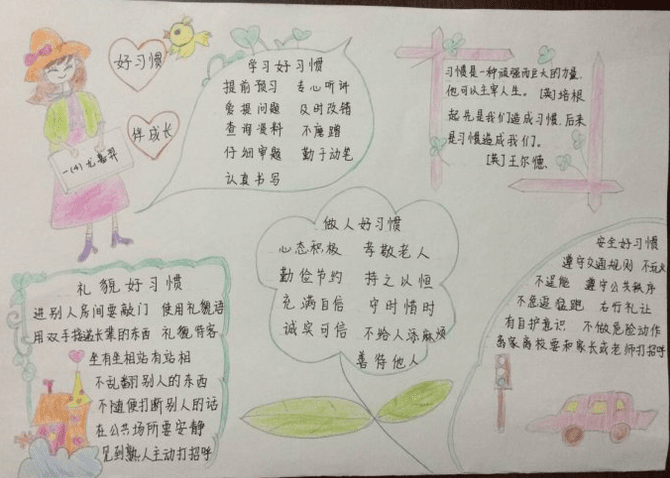 好习惯
伴成长
一(4)
学习好习惯
提前预习 专心听讲
爱提问题 及时改错
查询资料 不磨蹭
仔细审题 勤于动笔
认真书写
习惯是一种顽强而巨大的力量,
他可以主宰人生。[英]培根
起先是我们造成习惯,后来
是习惯造成我们。
[英]王尔德
做人好习惯
心态积极 孝敬老人
勤俭节约 持之以恒
充满自信 守时惜时
诚实可信 不给人添麻烦
善待他人
礼貌好习惯
进别人房间要敲门 使用礼貌语
用双手接递长辈的东西 礼貌待客
坐有坐相站有站相
不乱翻别人的东西
不随便打断别人的话
在公共场所要安静
见到熟人主动打招呼
安全好习惯
遵守交通规则 不玩火
不逞能 遵守公共秩序
不追逗猛跑 右行礼让
有自护意识 不做危险动作
离家离校要和家长或老师打招呼